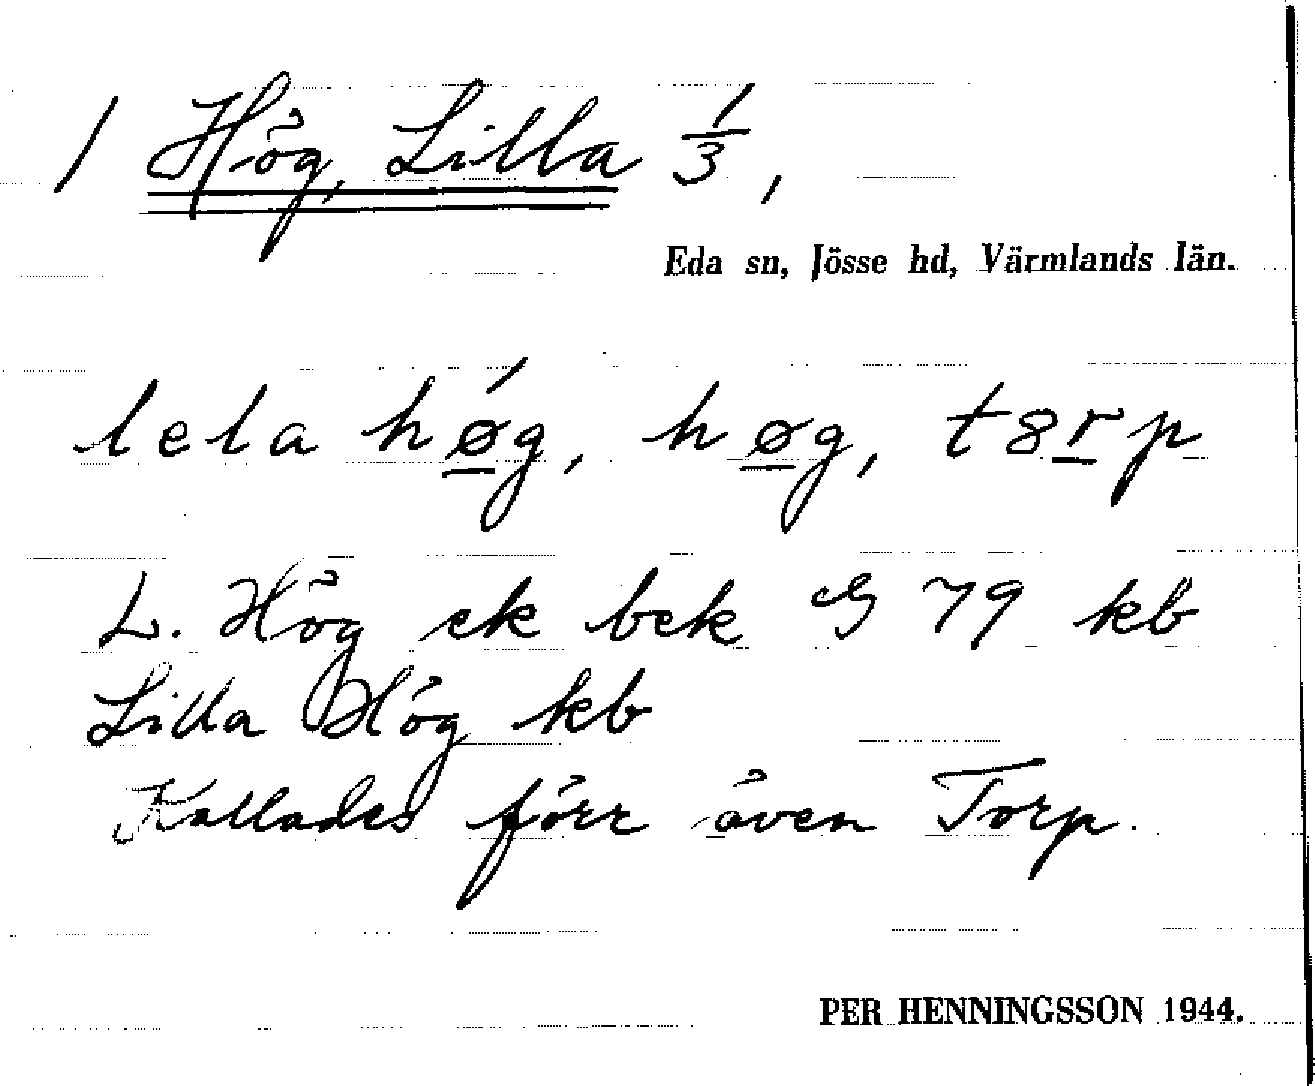 1 Hög, Lilla 1/3,
Eda sn, Jösse hd, Värmlands län.
lela hǿ̲g, hø̲g, t8r̲p
L. Hög ek bek G 79 kb
Lilla Hög kb
Kallades förr även Torp.
PER HENNINGSSON 1944.